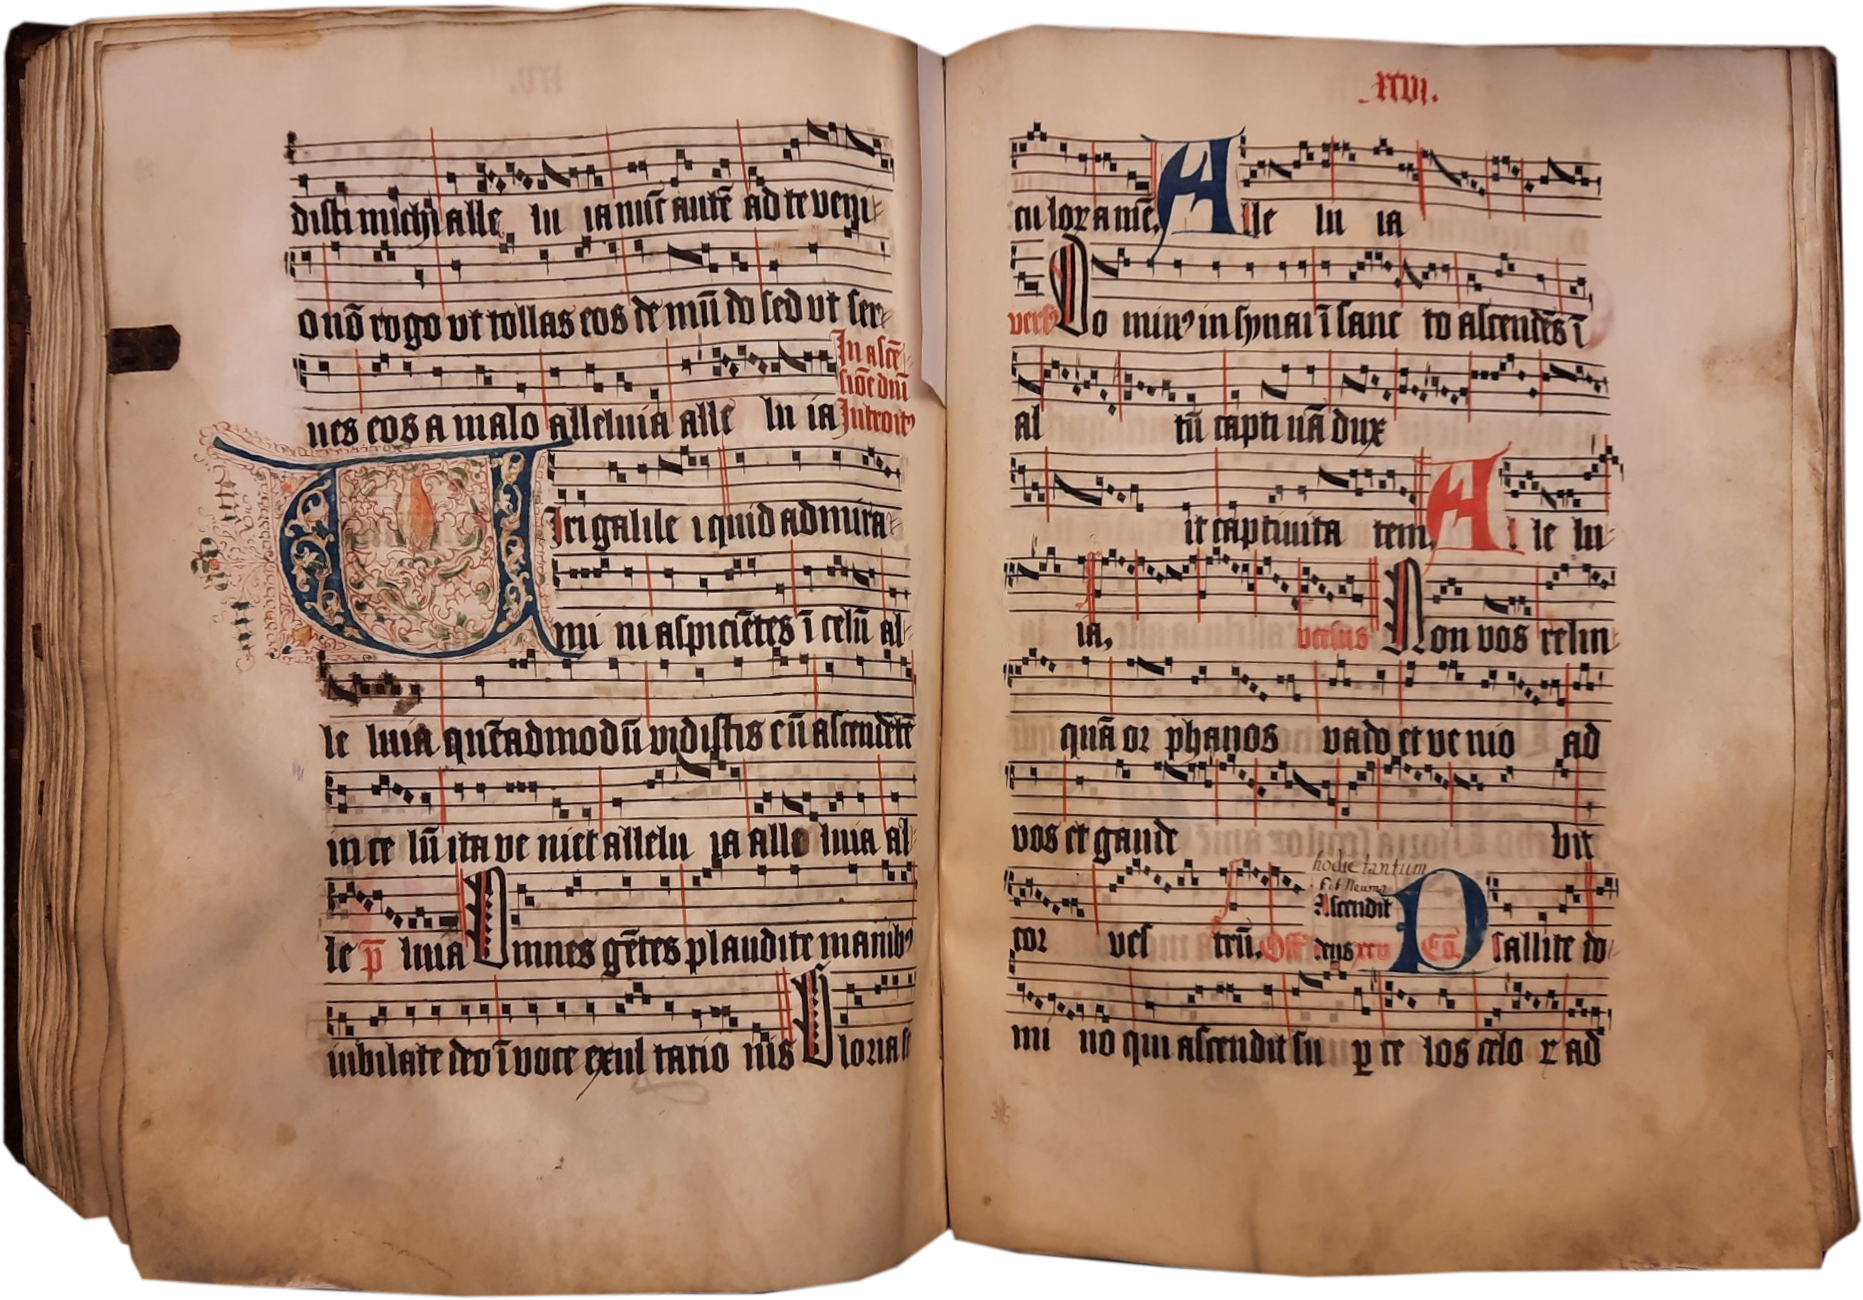 disti michi alle lu ia nūc autē ad te veni
o nō rogo vt tollas eos de mūdo sed vt ser
ues eos a malo alleluia alle lu ia
In ascē
siōe dnī
Introitꝰ
Uiri galile i quid admira
mi ni aspiciētes ī celū al
le luia quēadmodū vidistis eū ascendētē
in ce lū ita ve niet allelu ia alle luia al
le p̄ luia Omnes gētes plaudite manibꝰ
iubilate deo ī voce exul tatio nis Gloria se
xxvi.
cu lor amē. Alle lu ia
versꝰ Do minꝰ in synai ī sanc to ascendēs ī
al tū capti uā dux
it captiuita tem. Al le lu
ia, versus Non vos relin
quā or phanos vado et ve nio ad
vos et gaude bit
hodie tantum
fit Neuma
Ascendit
cor ves trū. Off deus Cō Psallite do
mi no qui ascendit su ꝑ ce los celo ꝝ ad